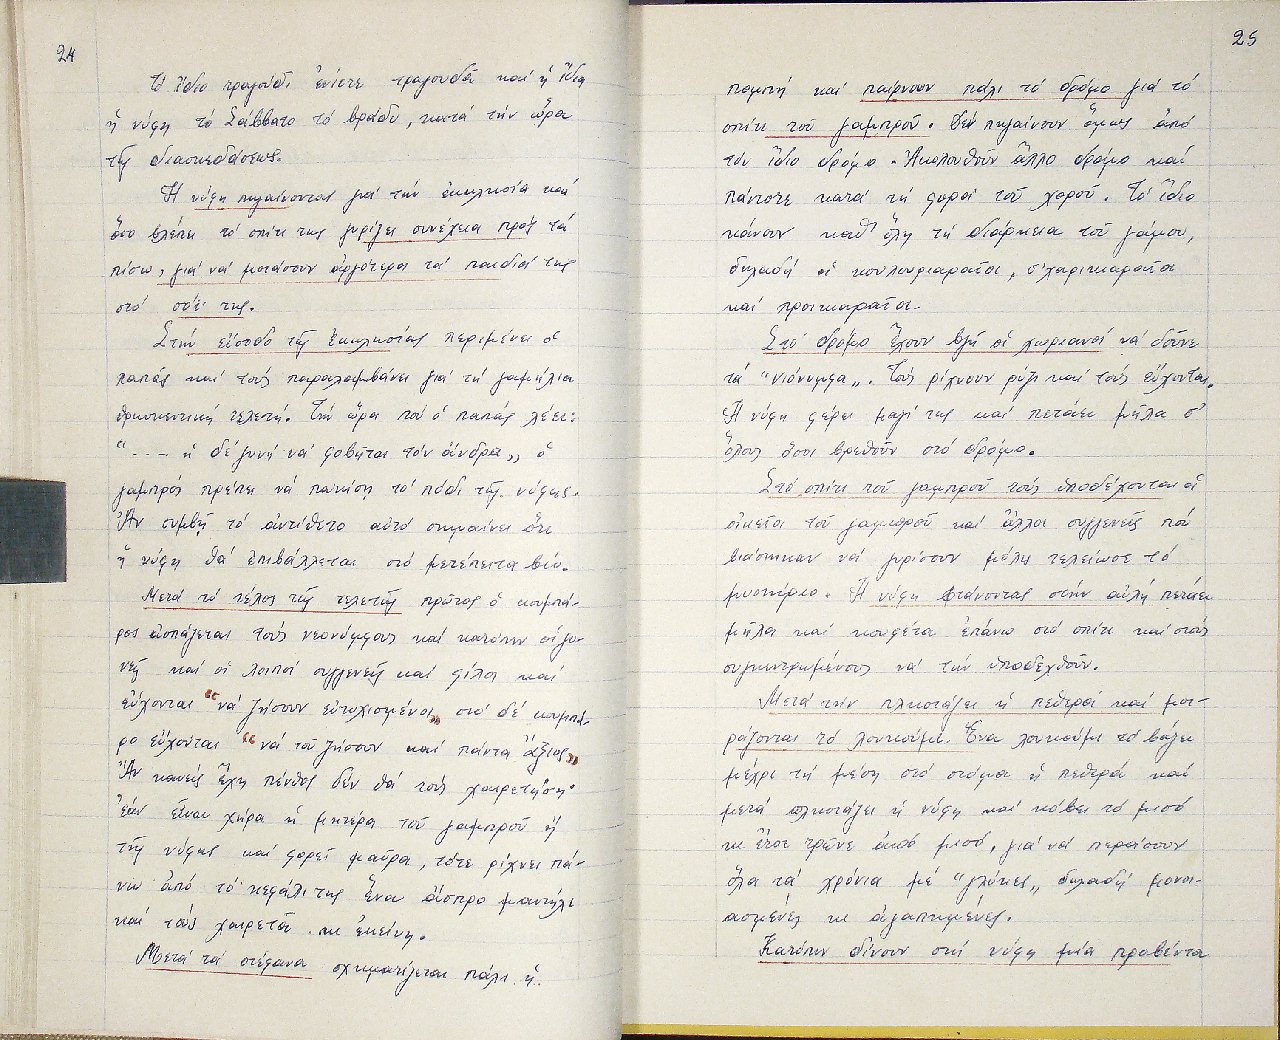 24
Τό ἴδιο τραγούδι ἐνίοτε τραγουδᾶ καί ἡ ἴδια
ἡ νύφη τό Σάββατο τό βράδυ, κατά τήν ὥρα
τῆς διασκεδάσεως.
Ἡ νύφη πηγαίνοντας γιά τήν ἐκκλησία καί
ὅσο βλέπει τό σπίτι της γυρίζει συνέχεια πρός τά
πίσω, γιά νά μοιάσουν ἀργότερα τά παιδιά της
στό σόϊ της.
Στήν εἴσοδο τῆς ἐκκλησίας περιμένει ὁ
παπάς καί τούς παραλαμβάνει γιά τή γαμήλια
θρησκευτική τελετή. Τήν ὥρα πού ὁ παπάς λέει:
"... ἡ δέ γυνή νά φοβῆται τόν ἄνδρα,, ὁ
γαμπρός πρέπει νά πατήση τό πόδι τῆς νύφης.
Ἄν συμβῆ τό ἀντίθετο αὐτό σημαίνει ὅτι
ἡ νύφη θά ἐπιβάλλεται στό μετέπειτα βίο.
Μετά τό τέλος τῆς τελετῆς πρῶτος ὁ κουμπά-
ρος ἀσπάζεται τούς νεονύμφους καί κατόπιν οἱ γο-
νεῖς καί οἱ λοιποί συγγενεῖς καί φίλοι καί
εὔχονται "νά ζήσουν εὐτυχισμένοι,, στό δέ κουμπά-
ρο εὔχονται "νά τοῦ ζήσουν καί πάντα ἄξιος,,
Ἄν κανείς ἔχη πένθος δέν θά τούς χαιρετήση.
Ἐάν εἶναι χήρα ἡ μητέρα τοῦ γαμπροῦ ἤ
τῆς νύφης καί φορεῖ μαῦρα, τότε ρίχνει πά-
νω ἀπό τό κεφάλι της ἕνα ἄσπρο μαντήλι
καί τούς χαιρετᾶ κι ἐκείνη.
Μετά τά στέφανα σχηματίζεται πάλι ἡ
25
πομπή καί παίρνουν πάλι τό δρόμο γιά τό
σπίτι τοῦ γαμπροῦ. Δέν πηγαίνουν ὅμως ἀπό
τόν ἴδιο δρόμο. Ἀκολουθοῦν ἄλλο δρόμο καί
πάντοτε κατά τή φορά τοῦ χοροῦ. Τό ἴδιο
κάνουν καθ' ὅλη τή διάρκεια τοῦ γάμου,
δηλαδή οἱ κουλουριαραῖοι, σ'χαρικιαραῖοι
καί προικιαραῖοι.
Στό δρόμο ἔχουν βγῆ οἱ χωριανοί νά δοῦνε
τά "νιόνυμφα,,. Τούς ρίχνουν ρύζι καί τούς εὔχονται.
Ἡ νύφη φέρει μαζί της καί πετάει μῆλα σ'
ὅλους ὅσοι βρεθοῦν στό δρόμο.
Στό σπίτι τοῦ γαμπροῦ τούς ὑποδέχονται οἱ
οἰκεῖοι τοῦ γαμπροῦ καί ἄλλοι συγγενεῖς πού
βιάστηκαν νά γυρίσουν μόλις τελείωσε τό
μυστήριο. Ἡ νύφη φτάνοντας στήν αὐλή πετάει
μῆλα καί κουφέτα ἐπάνω στό σπίτι καί στούς
συγκεντρωμένους νά τήν ὑποδεχθοῦν.
Μετά τήν πλησιάζει ἡ πεθερά καί μοι-
ράζονται τό λουκούμι. Ἕνα λουκούμι τό βάζει
μέχρι τή μέση στό στόμα ἡ πεθερά καί
μετά πλησιάζει ἡ νύφη καί κόβει τό μισό
κι ἔτσι τρῶνε ἀπό μισό, γιά νά περάσουν
ὅλα τά χρόνια μέ "γλύκες,, δηλαδή μονοι-
ασμένες κι ἀγαπημένες.
Κατόπιν δίνουν στή νύφη μία προβέντα